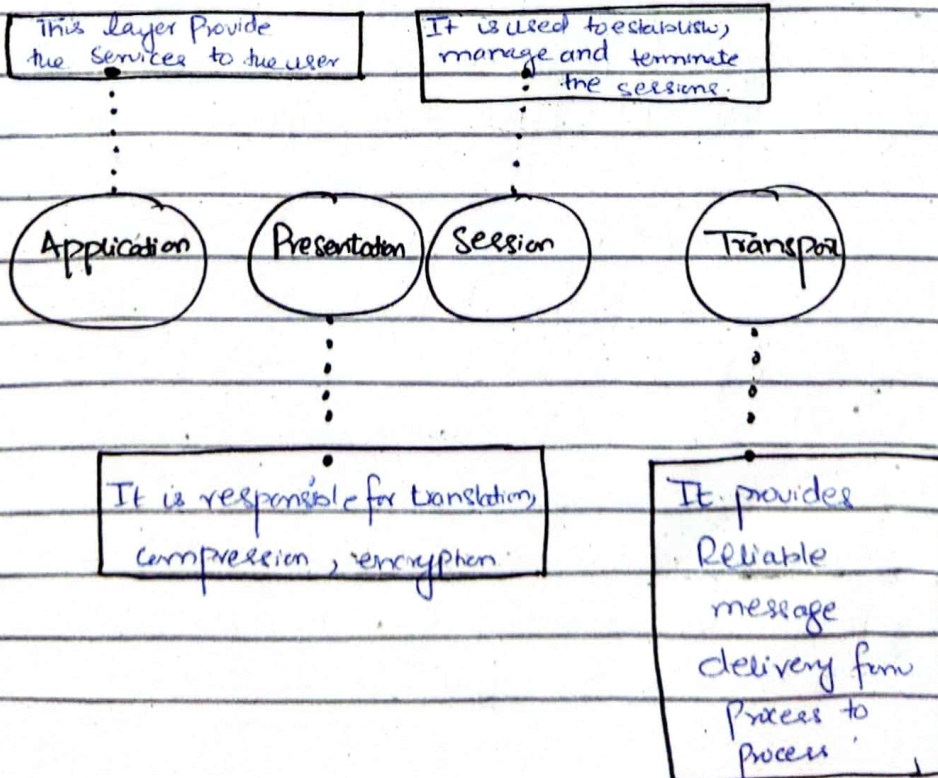 This layer Provide
the Services to the user
It is used to establish,
manage and terminate
the sessions.
Application
Presentation
Session
Transport
It is responsible for translation,
compression, encryption
It provides
Reliable
message
delivery from
Process to
Process